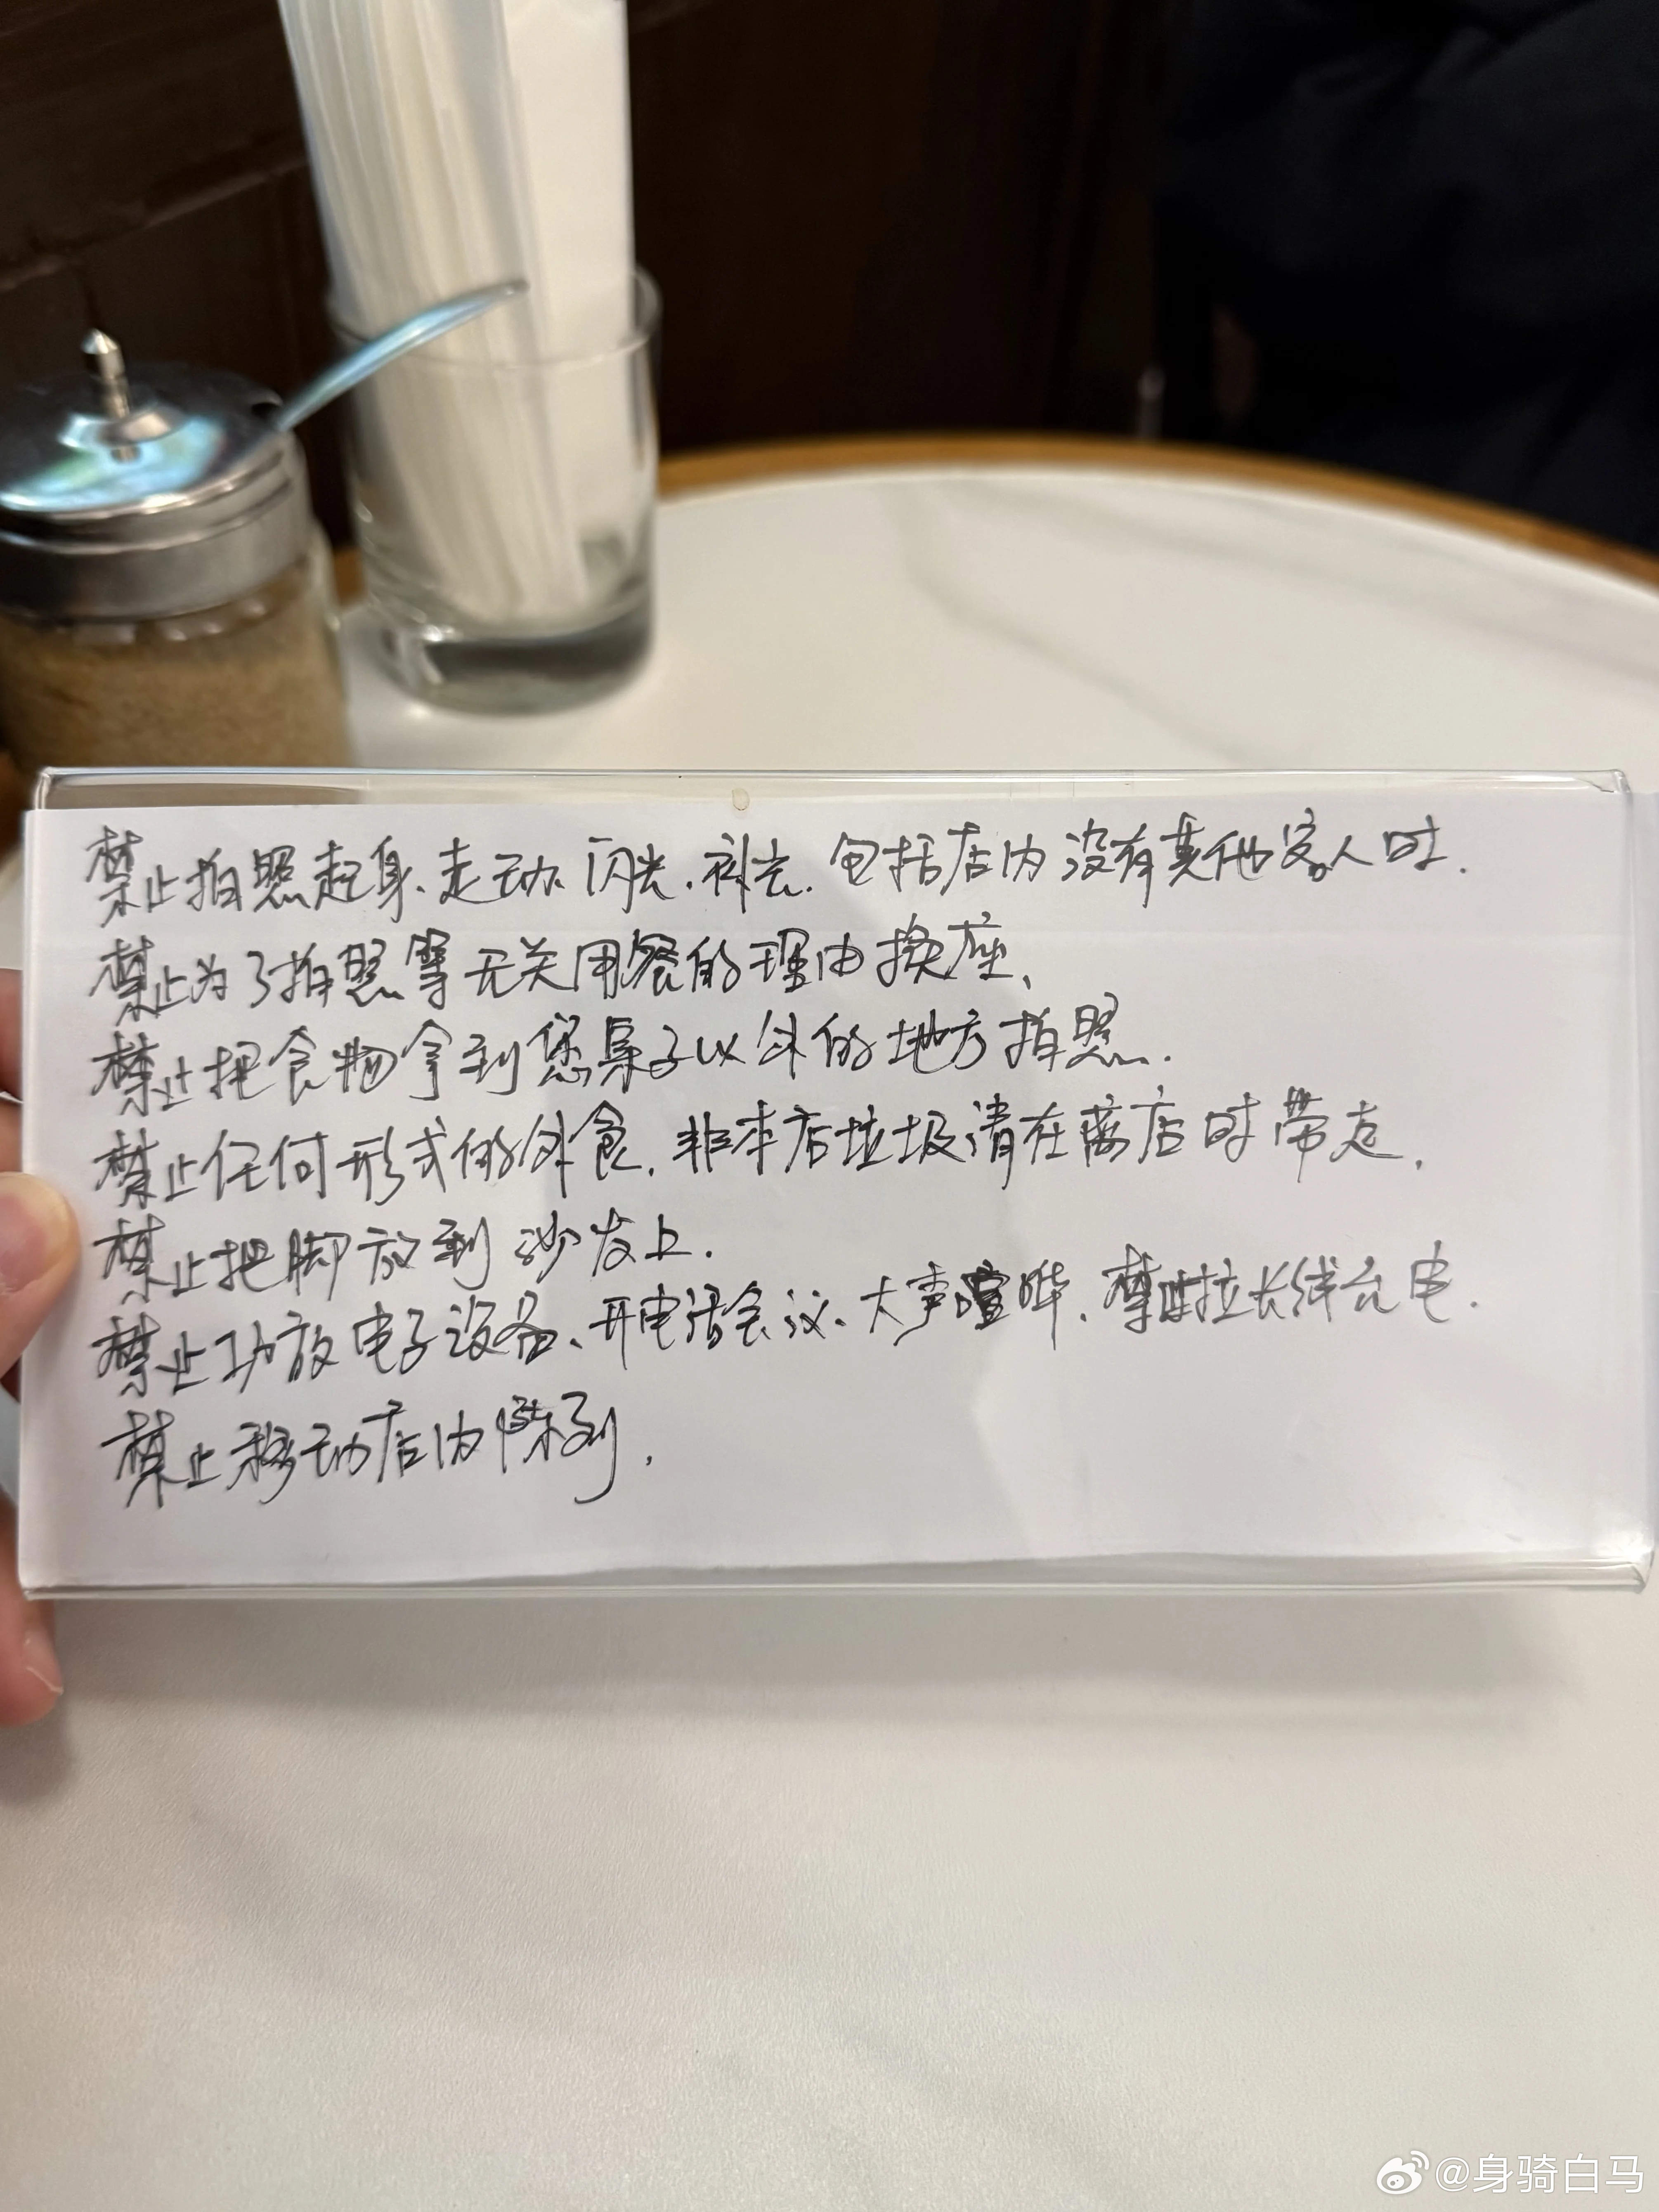 禁止拍照起身、走动、闪光、补光.包括店内没有其他客人时.
禁止为了拍照等无关用餐的理由换座、
禁止把食物拿到您桌子以外的地方拍照.
禁止任何形式的外食.非本店垃圾请在离店时带走.
禁止把脚放到沙发上.
禁止功放电子设备、开电话会议、大声喧哗.禁止拉长线充电.
禁止移动店内陈列.
@身骑白马